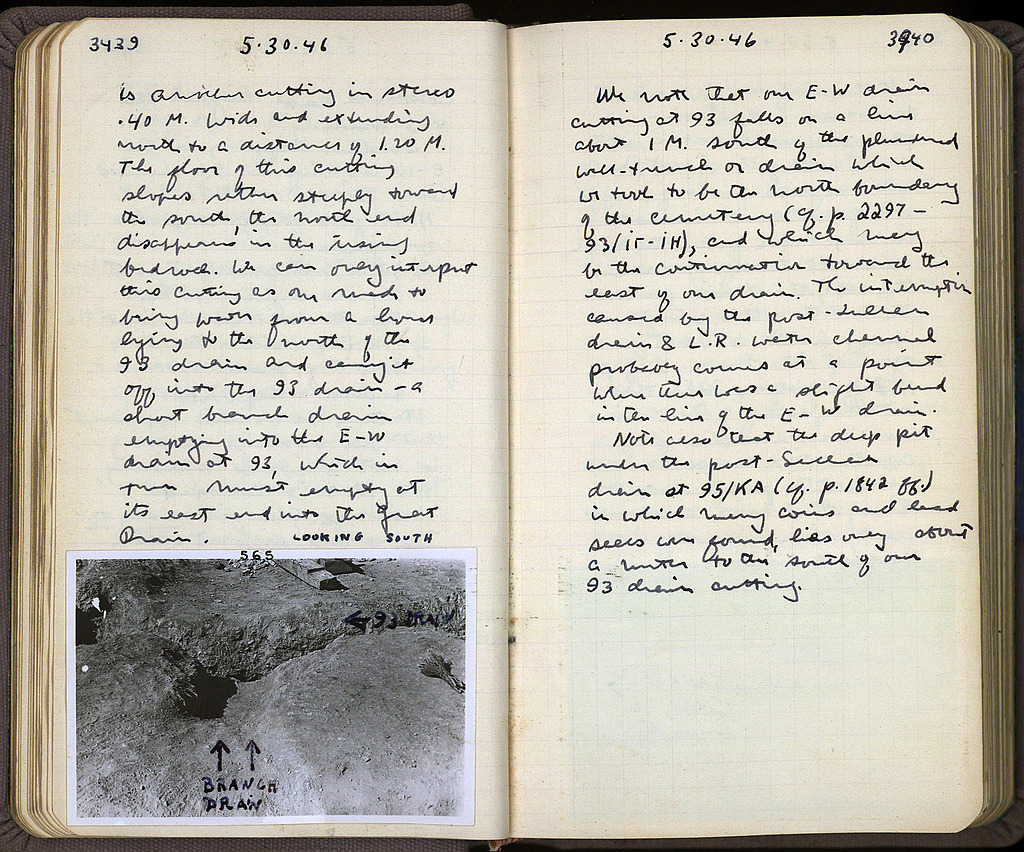 3439
5·30·46
is another cutting in stereo
.40 M. wide and extending
north to a distance of 1.20 M.
The floor of this cutting
slopes rather steeply toward
the south, the north end
disappears in the rising
bedrock. We can only interpret
this cutting as one made to
bring water from a house
lying to the north of the
93 drain and carry it
off into the 93 drain – a
short branch drain
emptying into the E–W
drain at 93, which in
turn must empty at
its east end into the Great
Drain.
LOOKING SOUTH
565
← 93 DRAIN
↑ ↑
BRANCH
DRAIN
5·30·46
3440
We note that our E–W drain
cutting at 93 falls on a line
about 1 M. south of the plundered
wall-trench or drain which
we took to be the north boundary
of the cemetery (cf. p. 2297 –
93/ΙΓ–ΙΗ), and which may
be the continuation toward the
east of our drain. The interruption
caused by the post-Sullan
drain & L.R. water channel
probably comes at a point
where there was a slight bend
in the line of the E–W drain.
Note also that the deep pit
under the post-Sullan
drain at 95/ΚΑ (cf. p. 1842 ff.)
in which many coins and lead
seals were found, lies only about
a meter to the south of our
93 drain cutting.